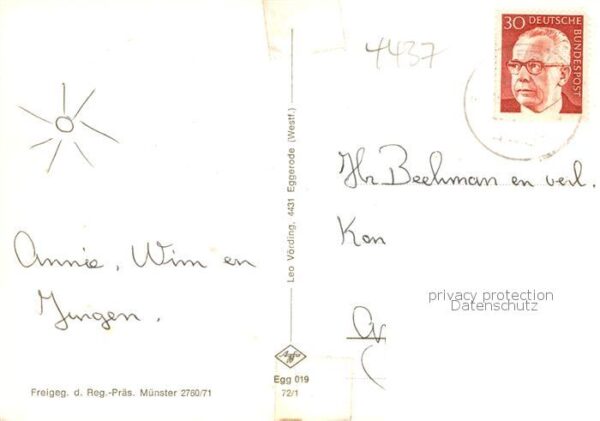 4437
30 DEUTSCHE
BUNDESPOST
Annie, Wim en
Jurgen.
Freigeg. d. Reg.-Präs. Münster 2760/71
Leo Vörding, 4431 Eggerode (Westf.)
Agfa
Egg 019
72/1
Hr Beekman en verl.
Kon
privacy protection
Datenschutz